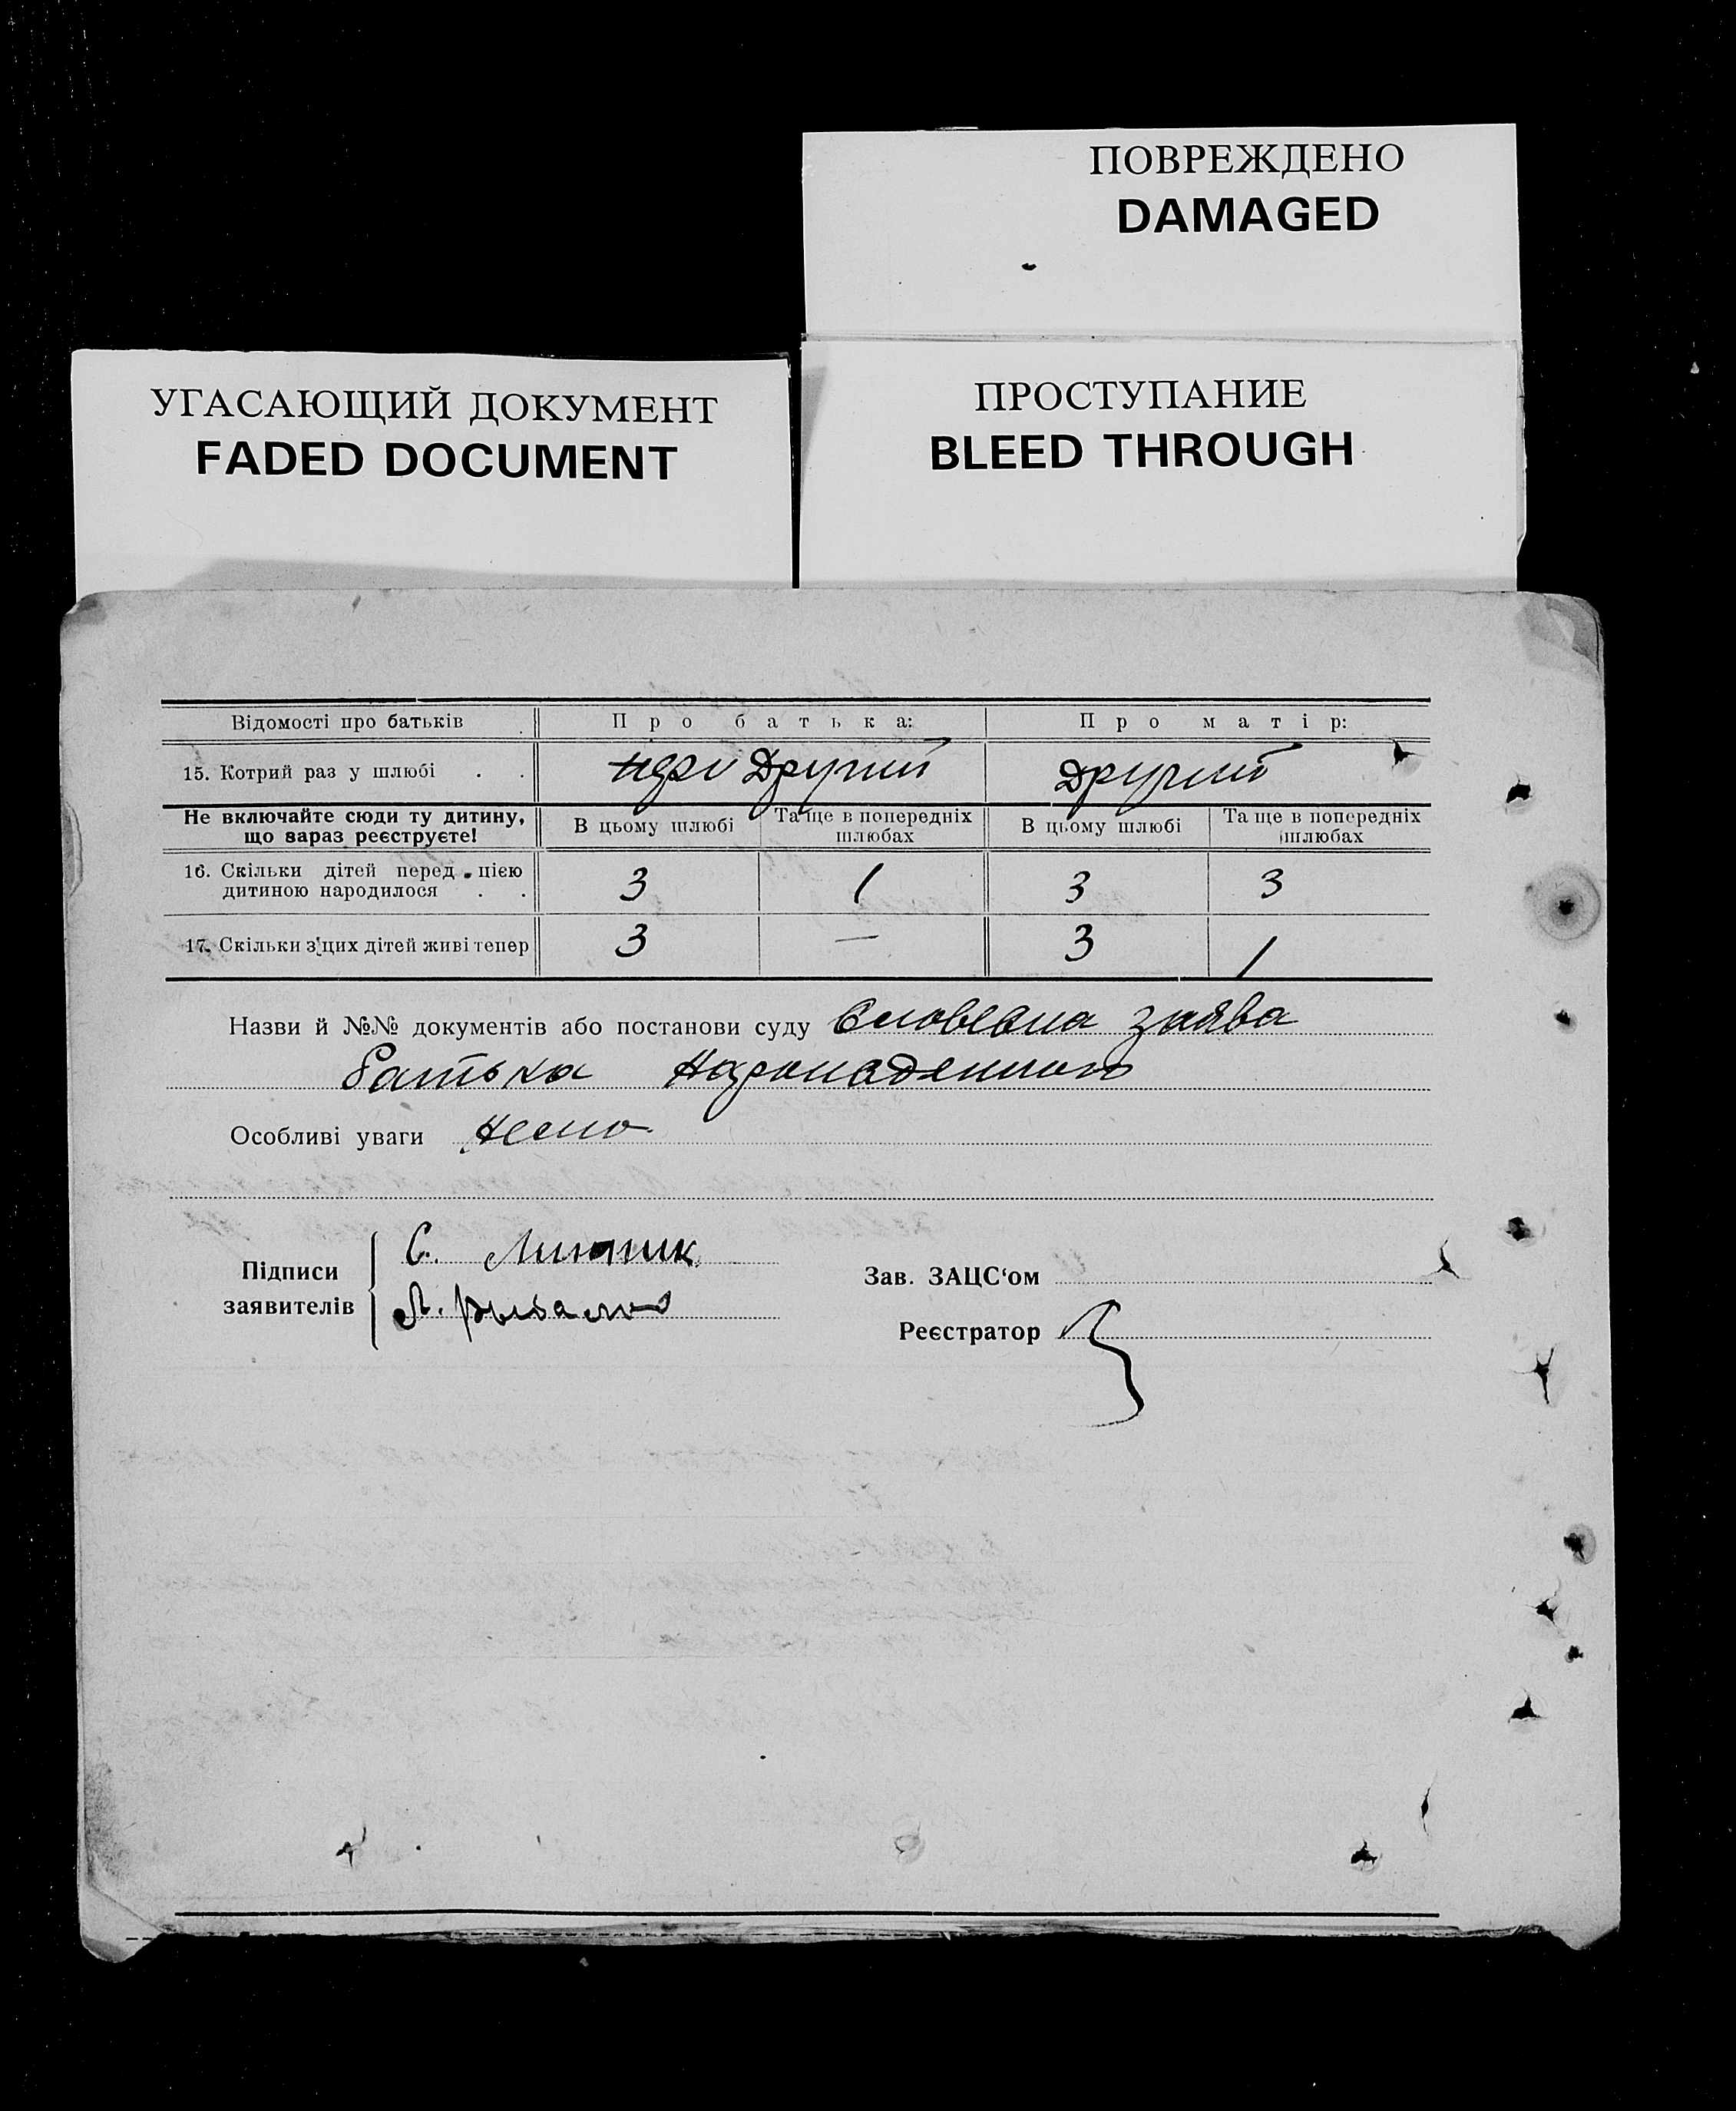 ПОВРЕЖДЕНО
DAMAGED
УГАСАЮЩИЙ ДОКУМЕНТ
FADED DOCUMENT
ПРОСТУПАНИЕ
BLEED THROUGH
Відомості про батьків Про батька: Про матір:
15. Котрий раз у шлюбі . . Другий Другий
Не включайте сюди ту дитину, що зараз реєструєте! В цьому шлюбі Та ще в попередніх шлюбах В цьому шлюбі Та ще в попередніх шлюбах
16. Скільки дітей перед цією
дитиною народилося . . 3 1 3 3
17. Скільки з цих дітей живі тепер 3 — 3 1
Назви й №№ документів або постанови суду Словесна заява
батька
Особливі уваги
Підписи заявителів
С.
Зав. ЗАЦС‘ом
Реєстратор